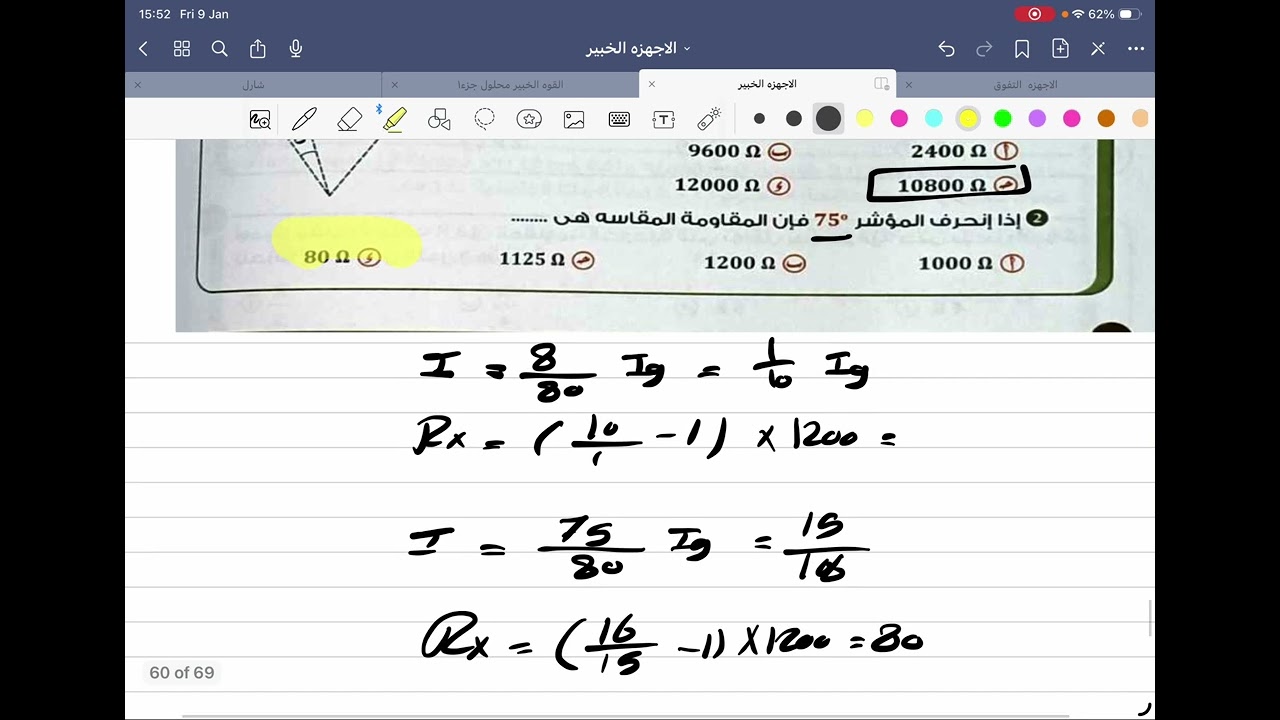 15:52 Fri 9 Jan
62%
الاجهزه الخبير
شارل
القوه الخبير محلول جزء١
الاجهزه الخبير
الاجهزه التفوق
أ 2400 Ω ب 9600 Ω
ج 10800 Ω د 12000 Ω
2 إذا إنحرف المؤشر 75° فإن المقاومة المقاسه هى ........
أ 1000 Ω ب 1200 Ω ج 1125 Ω د 80 Ω
I = 8/80 Ig = 1/10 Ig
Rx = (10/1 - 1) × 1200 =
I = 75/80 Ig = 15/16
Rx = (16/15 - 1) × 1200 = 80
60 of 69